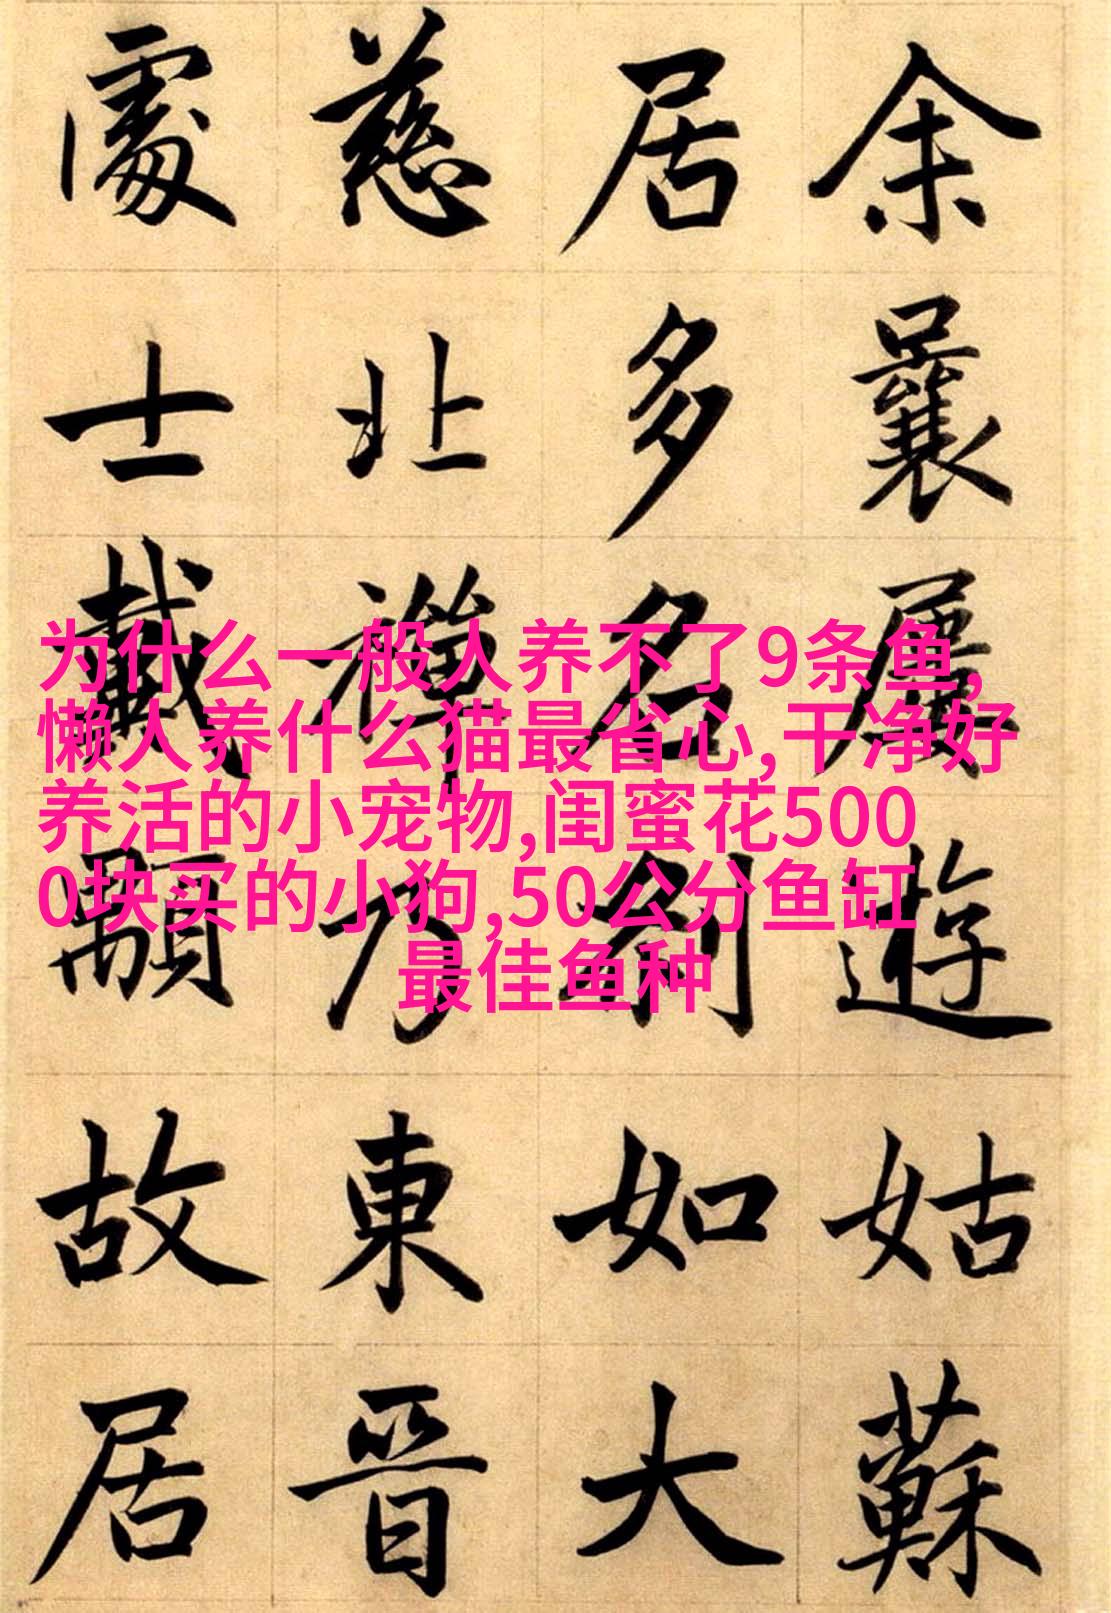 余曩屢遊姑蘇
居多名剎如大
慈北禪乃東晉
處士戴顒故居
为什么一般人养不了9条鱼,
懒人养什么猫最省心,干净好
养活的小宠物,闺蜜花500
0块买的小狗,50公分鱼缸
最佳鱼种